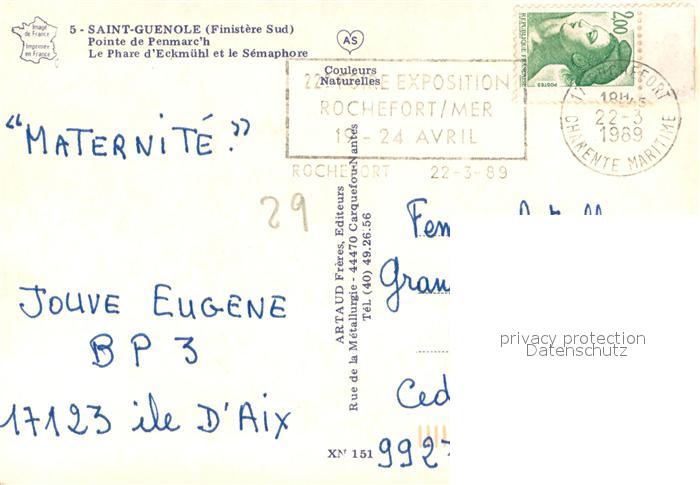 Image
de France
Imprimée
en France
5 - SAINT-GUENOLE (Finistère Sud)
Pointe de Penmarc'h
Le Phare d'Eckmühl et le Sémaphore
AS
Couleurs
Naturelles
2,00
REPUBLIQUE FRANÇAISE
POSTES
EXPOSITION
ROCHEFORT/MER
- 24 AVRIL
ROCHEFORT 22-3-89
22-3
1989
CHARENTE MARITIME
"MATERNITÉ."
29
JOUVE EUGENE
BP 3
17123 ile D'Aix
ARTAUD Frères, Editeurs
Rue de la Métallurgie - 44470 Carquefou-Nantes
Tél. (40) 49.26.56
XN 151
Fem
Gran
Ced
992
privacy protection
Datenschutz